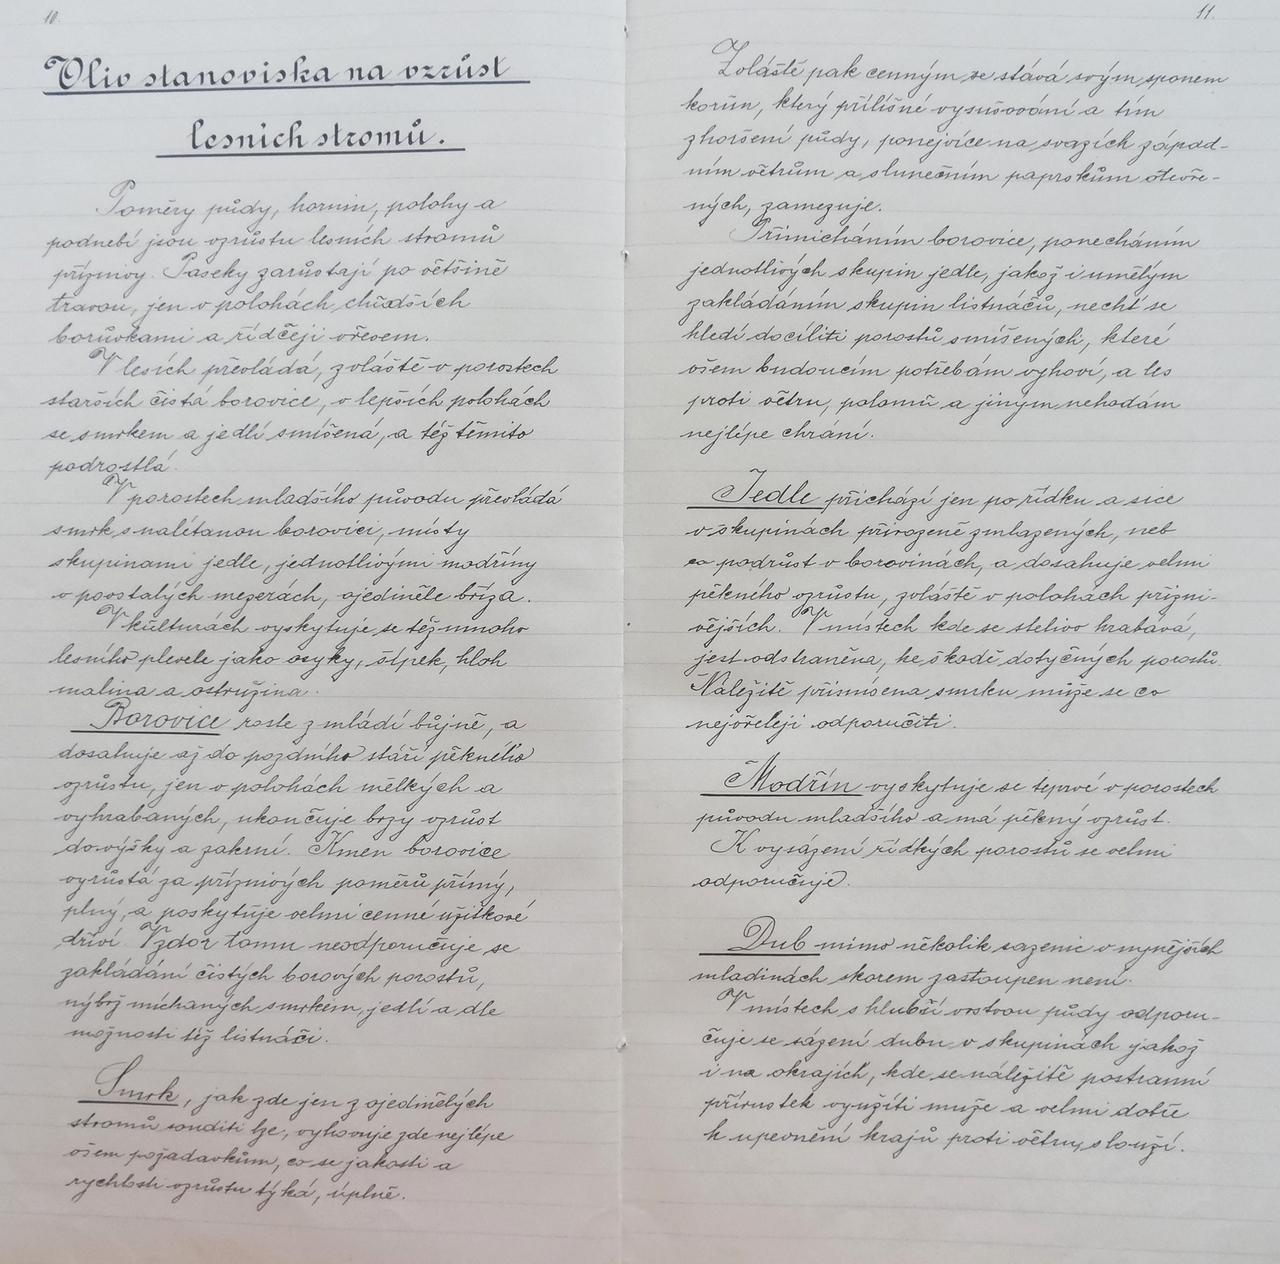 10.
Vliv stanoviska na vzrůst
lesních stromů.
Poměry půdy, hornin, polohy a
podnebí jsou vzrůstu lesních stromů
příznivy. Paseky zarůstají po většině
travou, jen v polohách chudších
borůvkami a řídčeji vřesem.
V lesích převládá, zvláště v porostech
starších čistá borovice, v lepších polohách
se smrkem a jedlí smíšená, a též těmito
podrostlá.
V porostech mladšího původu převládá
smrk s nalétanou borovicí, místy
skupinami jedle, jednotlivými modříny
v povstalých mezerách, ojediněle bříza.
V kulturách vyskytuje se též mnoho
lesního plevele jako osyky, šípek, hloh
malina a ostružina.
Borovice roste z mládí bůjně, a
dosahuje až do pozdního stáří pěkného
vzrůstu, jen v polohách mělkých a
vyhrabaných, ukončuje brzy vzrůst
do výšky a zakrní. Kmen borovice
vyrůstá za příznivých poměrů přímý,
plný, a poskytuje velmi cenné užitkové
dříví. Vzdor tomu neodporučuje se
zakládání čistých borových porostů,
nýbrž míchaných smrkem, jedlí a dle
možnosti též listnáči.
Smrk, jak zde jen z ojedinělých
stromů souditi lze, vyhovuje zde nejlépe
všem požadavkům, co se jakosti a
rychlosti vzrůstu týká, úplně.
11.
Zvláště pak cenným se stává svým sponem
korun, který přílišné vysušování a tím
zhoršení půdy, ponejvíce na svazích západ-
ním větrům a slunečním paprskům otevře-
ných, zamezuje.
Přimícháním borovice, ponecháním
jednotlivých skupin jedle, jakož i umělým
zakládáním skupin listnáčů, nechť se
hledí docíliti porostů smíšených, které
všem budoucím potřebám vyhoví, a les
proti větru, polomů a jiným nehodám
nejlépe chrání.
Jedle přichází jen po řídku a sice
v skupinách přirozeně zmlazených, neb
co podrůst v borovinách, a dosahuje velmi
pěkného vzrůstu, zvláště v polohách přízni-
vějších. V místech kde se stelivo hrabává,
jest odstraněna, ke škodě dotyčných porostů.
Náležitě přísmísena smrku může se co
nejvřeleji odporučiti.
Modřín vyskytuje se teprvé v porostech
původu mladšího a má pěkný vzrůst.
K vysázení řídkých porostů se velmi
odporučuje.
Dub mimo několik sazenic v nynějších
mladinách skorem zastoupen není.
V místech s hlubší vrstvou půdy odporu-
čuje se sázení dubu v skupinách jakož
i na okrajích, kde se náležitě postranní
přírustek využíti muže a velmi dobře
k upevnění krajů proti větru, slouží.